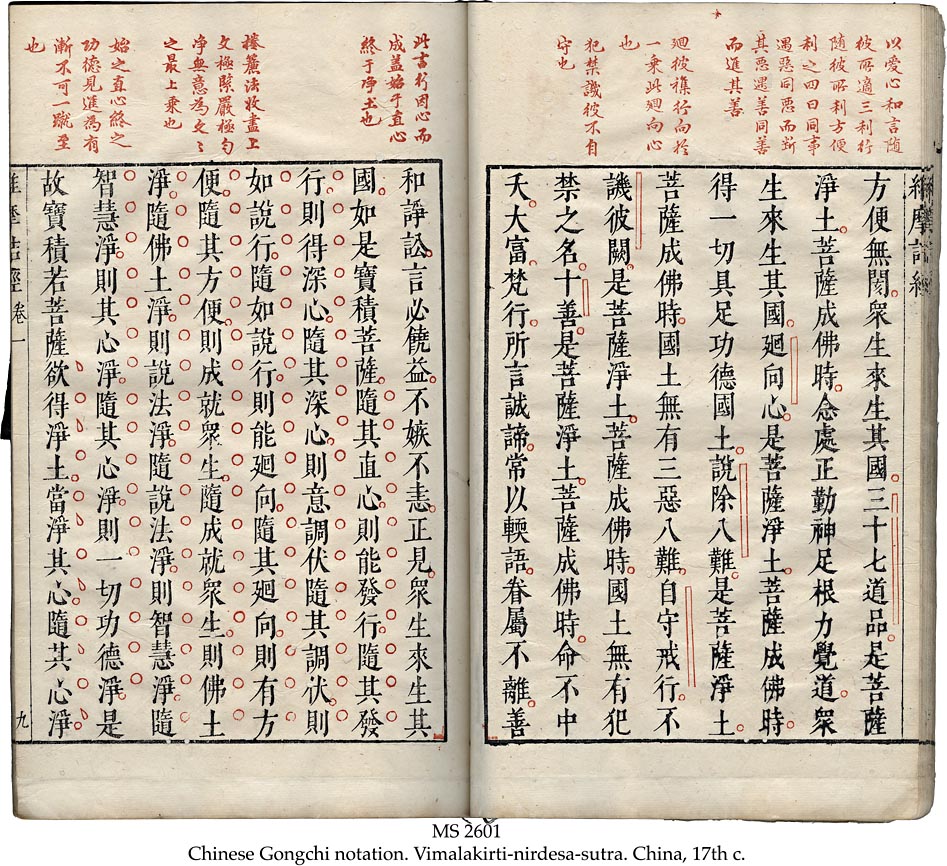 以愛心和言随
彼所適三利行
随彼所利方便
利之四曰同事
遇惡同惡而斷
其惡遇善同善
而進其善
廻彼襍行向於
一乗此廻向心
也
犯禁譏彼不自
守也
維摩詰經
方便無閡衆生來生其國三十七道品是菩薩
淨土菩薩成佛時念處正勤神足根力覺道衆
生來生其國廻向心是菩薩淨土菩薩成佛時
得一切具足功德國土說除八難是菩薩淨土
菩薩成佛時國土無有三惡八難自守戒行不
譏彼闕是菩薩淨土菩薩成佛時國土無有犯
禁之名十善是菩薩淨土菩薩成佛時命不中
夭大富梵行所言誠諦常以輭語眷屬不離善
此言行因心而
成益始于直心
終于净土也
捲簾法收盡上
文極緊嚴極勻
净無意為文々
之最上乗也
始之直心終之
功德見進為有
漸不可一蹴至
也
和諍訟言必饒益不嫉不恚正見衆生來生其
國如是寶積菩薩隨其直心則能發行隨其發
行則得深心隨其深心則意調伏隨其調伏則
如說行隨如說行則能廻向隨其廻向則有方
便隨其方便則成就衆生隨成就衆生則佛土
淨隨佛土淨則說法淨隨說法淨則智慧淨隨
智慧淨則其心淨隨其心淨則一切功德淨是
故寶積若菩薩欲得淨土當淨其心隨其心淨
維摩詰經 卷一 九
MS 2601
Chinese Gongchi notation. Vimalakirti-nirdesa-sutra. China, 17th c.